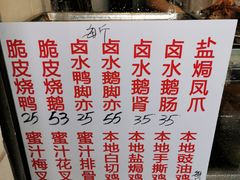 每斤
脆皮烧鸭
25
脆皮烧鹅
53
卤水鸭脚亦
25
卤水鹅脚亦
55
卤水鹅肾
35
卤水鹅肠
35
盐焗凤爪
蜜汁梅叉
蜜汁花叉
蜜汁排骨
本地白切鸡
本地盐焗鸡
本地手撕鸡
本地豉油鸡